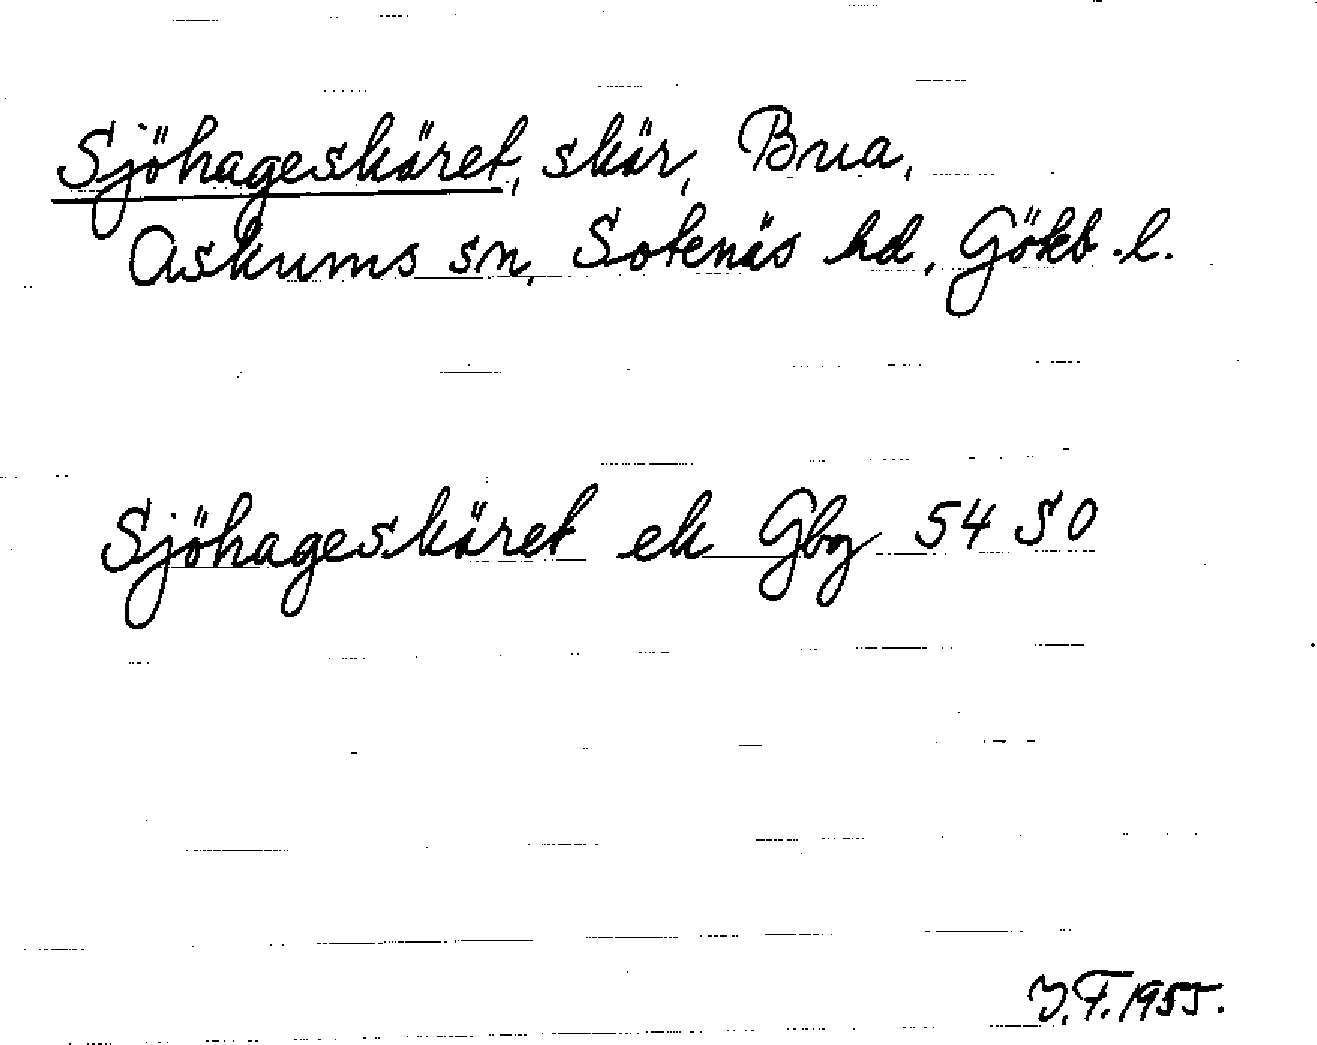 Sjöhageskäret, skär, Brua,
Askums sn, Sotenäs hd, Gökb. l.
Sjöhageskäret ek Gbg 54 SO
Y.F. 1955.